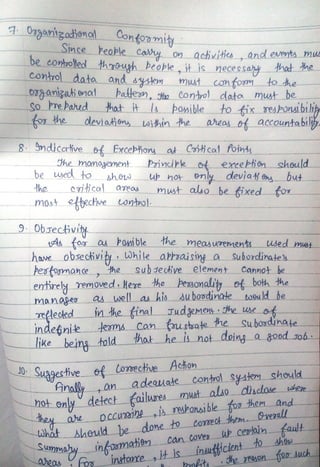 7. Organizational Conformity
Since people carry on activities, and events mus
be controlled through people, it is necessary that the
control data and system must conform to the
organizational pattern. The control data must be
so prepared that it is possible to fix responsibility
for the deviations within the areas of accountability.
8. Indicative of Exceptions at Critical Points
The management Principle of exception should
be used to show up not only deviations but
the critical areas must also be fixed for
most effective control.
9. Objectivity
As far as possible the measurements used must
have objectivity. While appraising a subordinate's
performance, the subjective element cannot be
entirely removed. Here the personality of both the
manager as well as his subordinate would be
reflected in the final Judgement. The use of
indefnite terms can frustrate the Subordinate
like being told that he is not doing a good Job.
10. Suggestive of Corrective Action
Finally, an adequate control system should
not only detect failures must also disclose where
they are occuring, is responsible for them and
what should be done to correct them. Overall
Summary information can cover up certain fault
areas. For instance, it is insufficient to show
profits. The reason for such